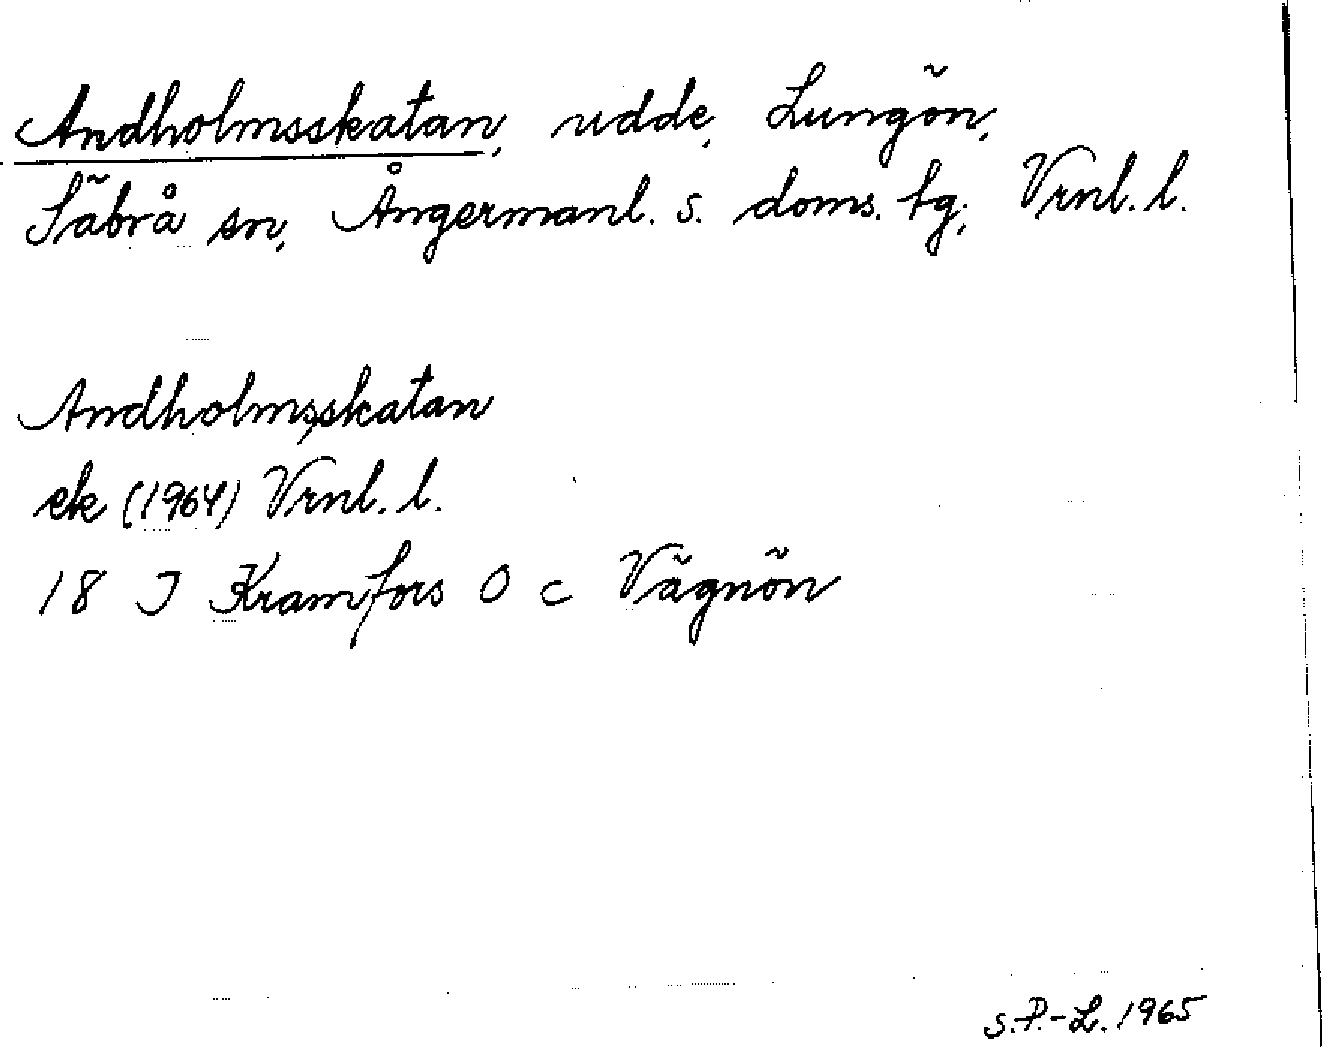 Andholmsskatan, udde, Lungön,
Säbrå sn, Ångermanl. s. doms. tg, Vrnl. l.
Andholmsskatan
ek (1964) Vrnl. l.
18 J Kramfors O c Vägnön
S.P.-L. 1965